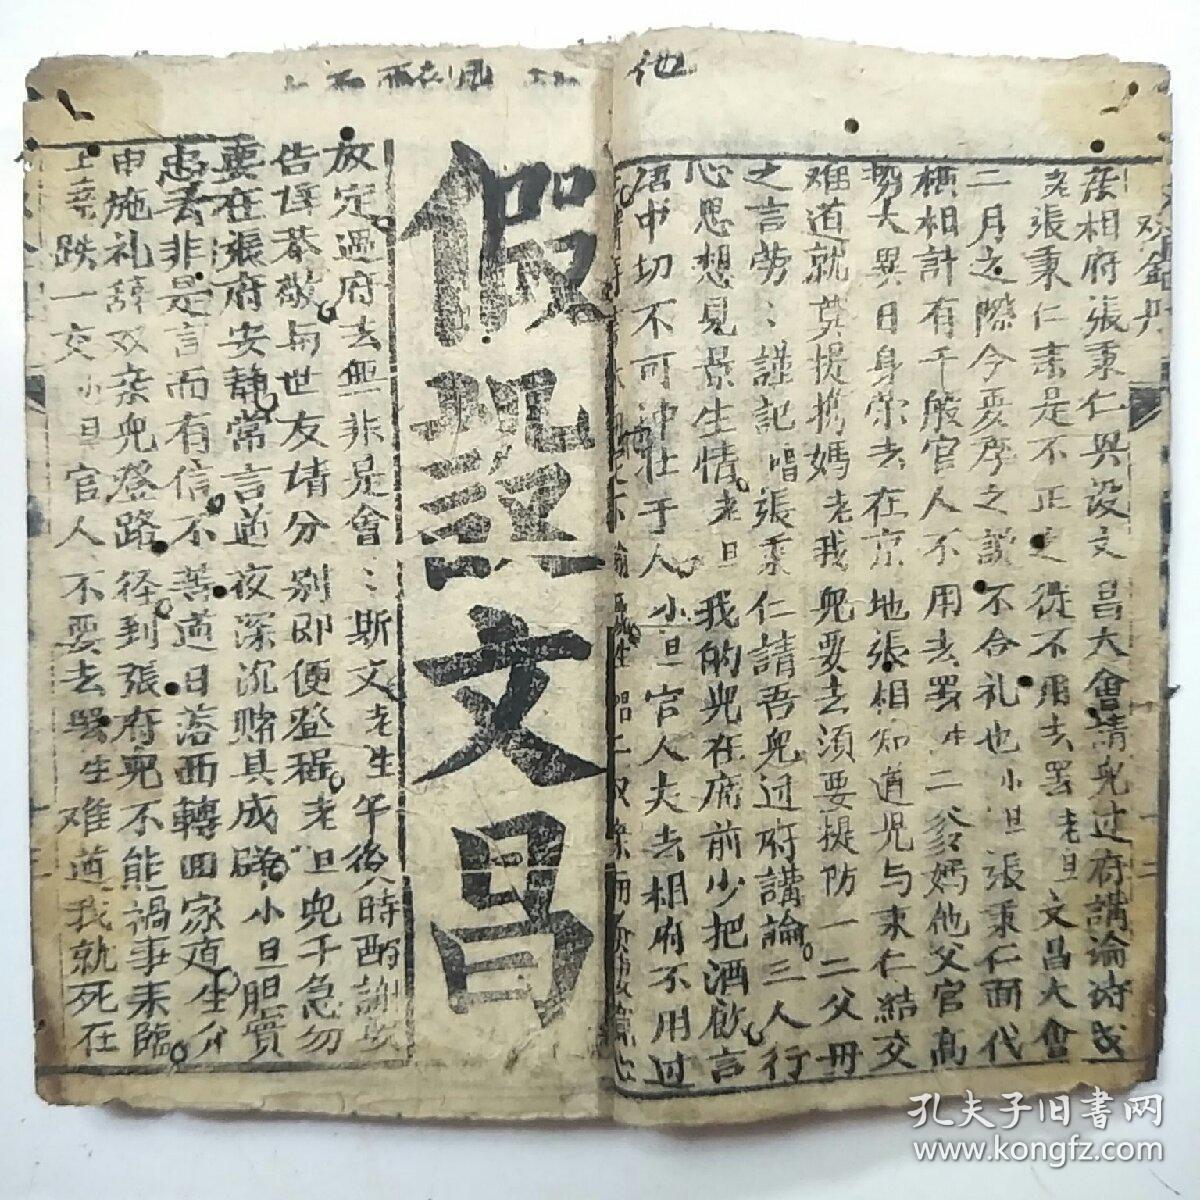 他
双金丹
张相府張秉仁與设文昌大會請兒过府講論诗
老張秉仁素是不正之徒不用去罢老旦文昌大會
二月之際今夏序之識不合礼也小旦張秉仁面代
横相計有千般官人不用去罢生二爹媽他父官高
势大異日身荣去在京地張相知道児与秉仁結交
难道就莫提携媽老我兒要去須要提防一二父母
之言劳〻謹記唱張秉仁請吾兒过府講論三人行
心思想見景生情老旦我的兒在席前少把酒飲言
语中切不可冲壮于人小旦官人夫去相府不用过
假設文昌
放定過府去無非是會〻斯文老生午後時酧謝
告辞恭敬與世友情分別即便登程老旦兒千急勿
要在張府安静常言道夜深沉赌具成碎小旦胆實
忠丢非是言而有信不善道日落西轉回家道生介
申施礼辞双亲兒登路径到張府兒不能禍事来臨
上臺跌一交小旦官人不要去罢生难道我就死在
孔夫子旧书网
www.kongfz.com